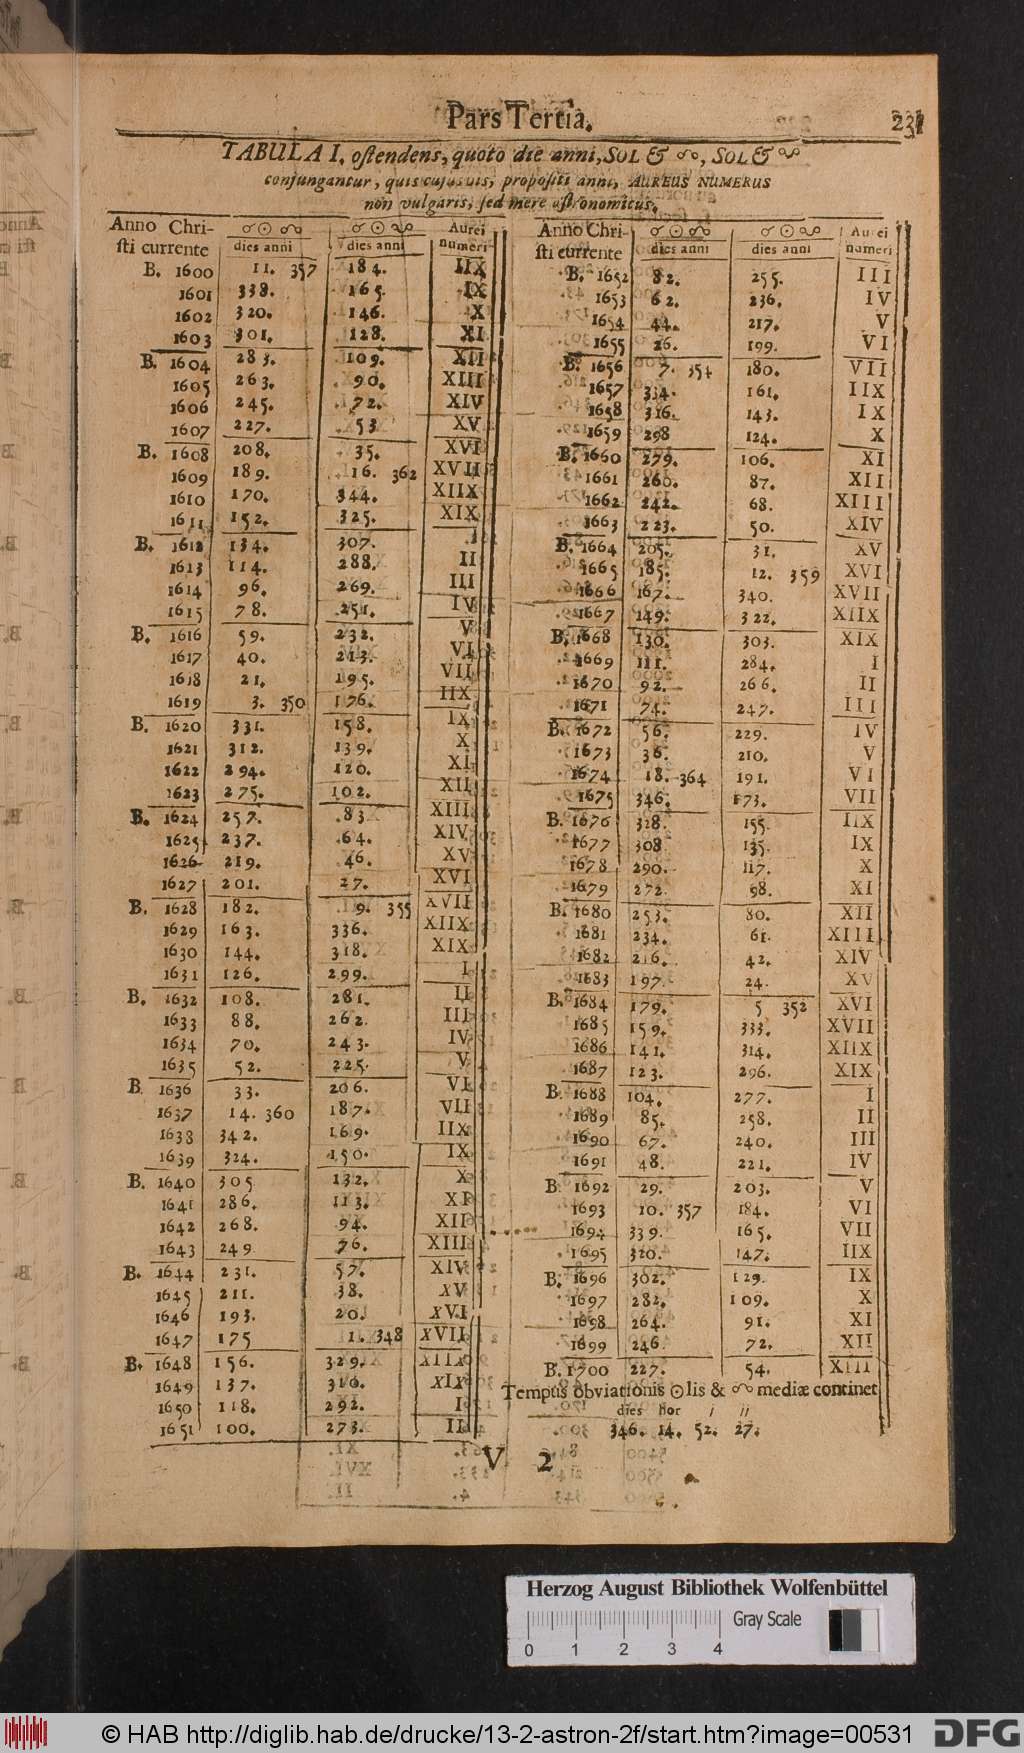 Pars Tertia. 231
TABULA I. ostendens, quoto die anni, SOL & ☊, SOL & ☋
conjungantur, quis cujusvis, propositi anni, AUREUS NUMERUS
non vulgaris, sed mere astronomicus.
Anno Chri- ☌ ☉ ☊ ☌ ☉ ☋ Aurei
sti currente dies anni dies anni numeri
B. 1600 11. 357 184. IIX
1601 338. 165. IX
1602 320. 146. X
1603 301. 128. XI
B. 1604 283. 109. XII
1605 263. 90. XIII
1606 245. 72. XIV
1607 227. 53 XV
B. 1608 208. 35. XVI
1609 189. 16. 362 XVII
1610 170. 344. XIIX
1611 152. 325. XIX
B. 1612 134. 307. I
1613 114. 288. II
1614 96. 269. III
1615 78. 251. IV
B. 1616 59. 232. V
1617 40. 213. VI
1618 21. 195. VII
1619 3. 350 176. IIX
B. 1620 331. 158. IX
1621 312. 139. X
1622 294. 120. XI
1623 275. 102. XII
B. 1624 257. 83 XIII
1625 237. 64. XIV
1626 219. 46. XV
1627 201. 27. XVI
B. 1628 182. 9. 355 XVII
1629 163. 336. XIIX
1630 144. 318. XIX
1631 126. 299. I
B. 1632 108. 281. II
1633 88. 262. III
1634 70. 243. IV
1635 52. 225. V
B. 1636 33. 206. VI
1637 14. 360 187. VII
1638 342. 169. IIX
1639 324. 150. IX
B. 1640 305 132. X
1641 286. 113. XI
1642 268. 94. XII
1643 249 76. XIII
B. 1644 231. 57. XIV
1645 211. 38. XV
1646 193. 20. XVI
1647 175 1. 348 XVII
B. 1648 156. 329. XIIX
1649 137. 310. XIX
1650 118. 292. I
1651 100. 273. II
Anno Chri- ☌ ☉ ☊ ☌ ☉ ☋ Aurei
sti currente dies anni dies anni numeri
B. 1652 82. 255. III
1653 62. 236. IV
1654 44. 217. V
1655 26. 199. VI
B. 1656 7. 354 180. VII
1657 334. 161. IIX
1658 316. 143. IX
1659 298 124. X
B. 1660 279. 106. XI
1661 260. 87. XII
1662 242. 68. XIII
1663 223. 50. XIV
B. 1664 205. 31. XV
1665 185. 12. 359 XVI
1666 167. 340. XVII
1667 149. 322. XIIX
B. 1668 130. 303. XIX
1669 111. 284. I
1670 92. 266. II
1671 74. 247. III
B. 1672 56. 229. IV
1673 36. 210. V
1674 18. 364 191. VI
1675 346. 173. VII
B. 1676 328. 155. IIX
1677 308 135. IX
1678 290. 117. X
1679 272 98. XI
B. 1680 253. 80. XII
1681 234. 61. XIII
1682 216. 42. XIV
1683 197. 24. XV
B. 1684 179. 5 352 XVI
1685 159. 333. XVII
1686 141. 314. XIIX
1687 123. 296. XIX
B. 1688 104. 277. I
1689 85. 258. II
1690 67. 240. III
1691 48. 221. IV
B 1692 29. 203. V
1693 10. 357 184. VI
1694 339. 165. VII
1695 320. 147. IIX
B. 1696 302. 129. IX
1697 282. 109. X
1698 264. 91. XI
1699 246. 72. XII
B. 1700 227. 54. XIII
Tempus obviationis ☉lis & ☊ mediæ continet
dies hor ı ıı
346. 14. 52. 27.
V 2
Herzog August Bibliothek Wolfenbüttel
Gray Scale
0 1 2 3 4
© HAB http://diglib.hab.de/drucke/13-2-astron-2f/start.htm?image=00531 DFG